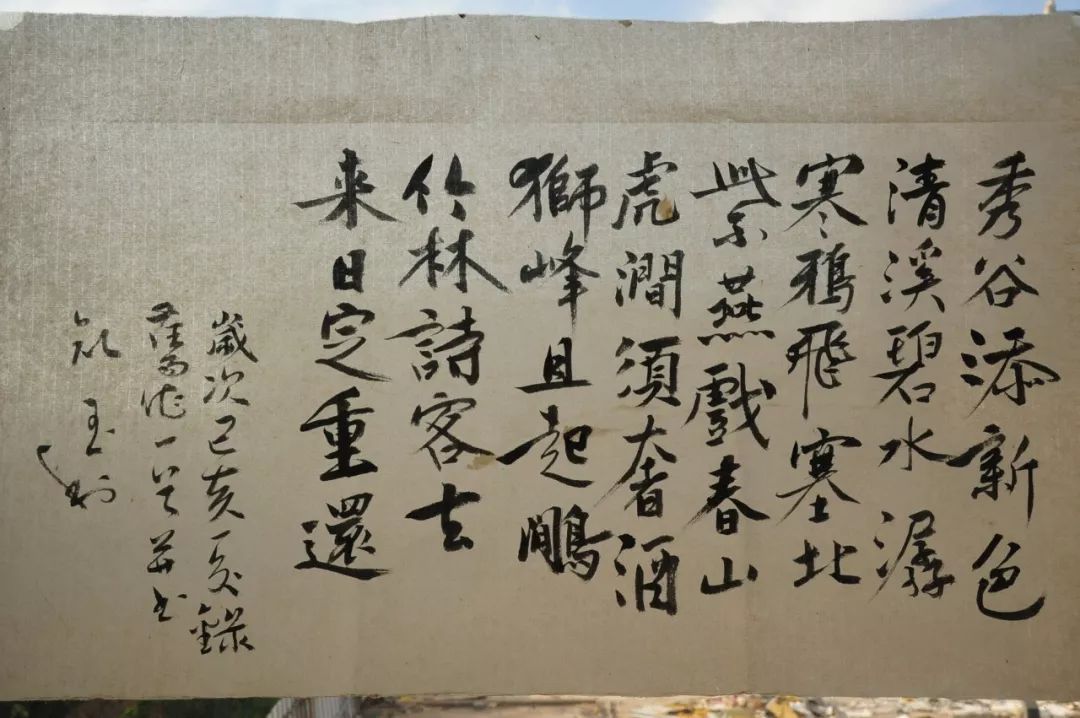 秀谷添新色
清溪碧水潺
寒鴉飛塞北
紫燕戲春山
虎澗須奢酒
獅峰且起鵰
竹林詩客去
来日定重還
歲次己亥夏錄
舊作一首並書
玉利